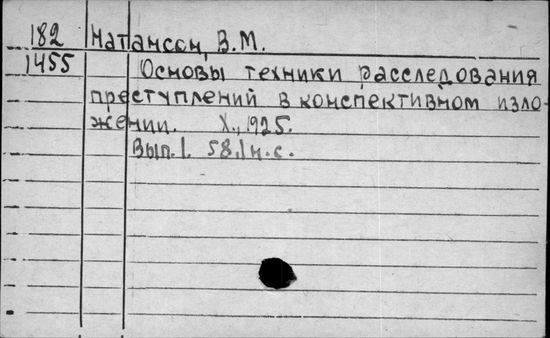 182 Натанссн, В.М.
1455 Основы техники расследования
преступлений в конспективном изло-
жении. Х., 1925.
Вып.1. 58,1н.с.